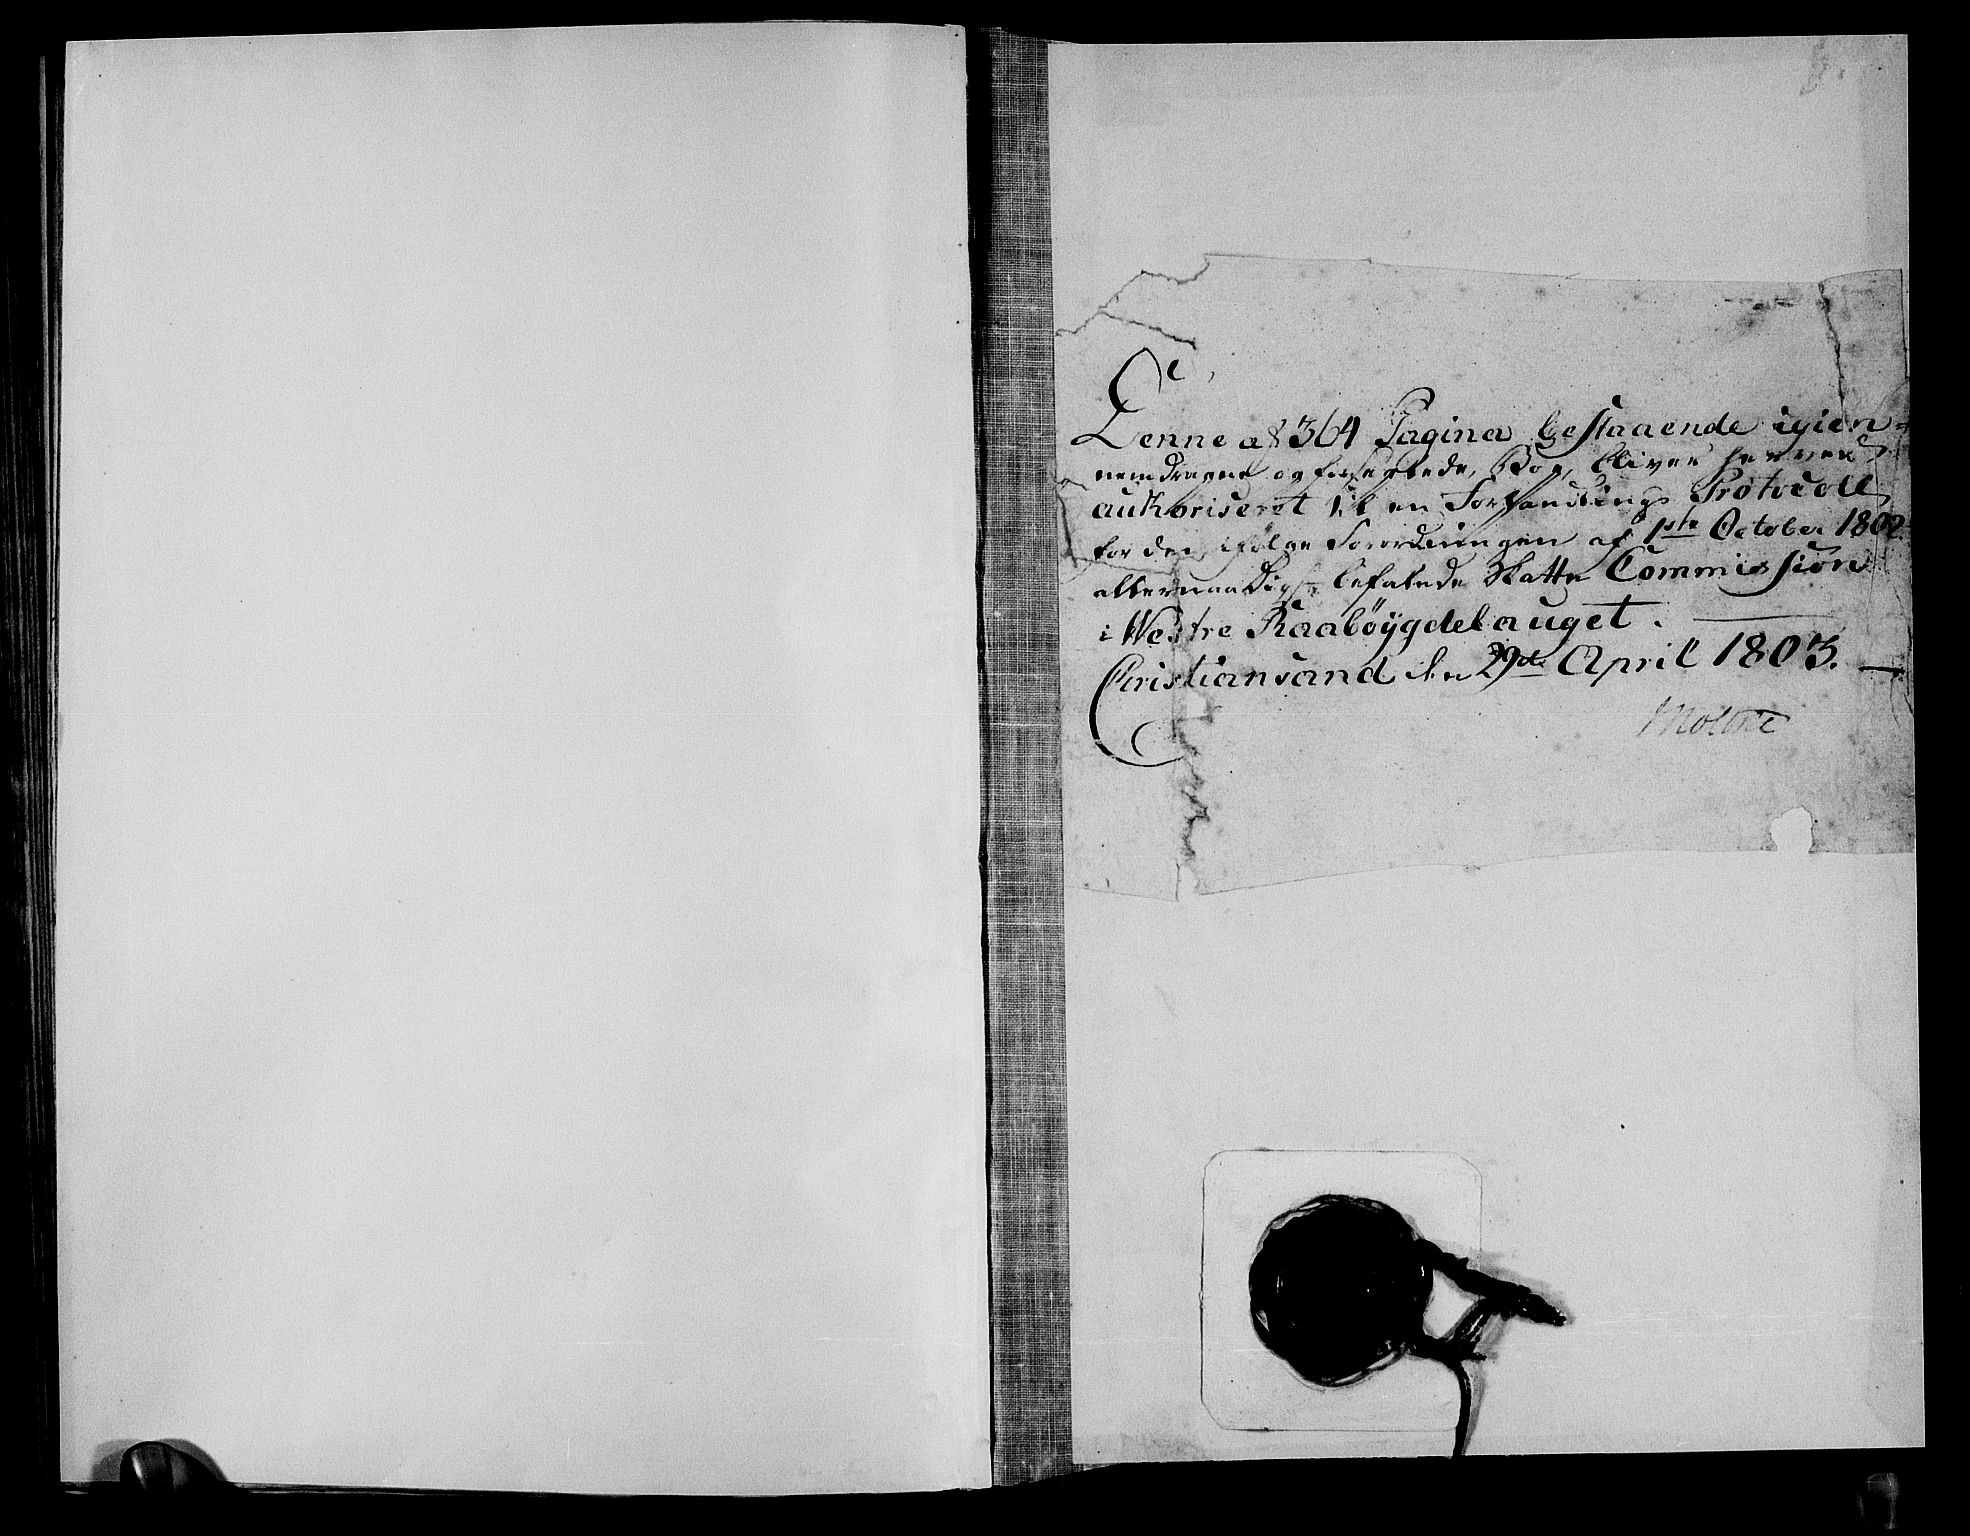 Denne af 364 Pagina bestaaende igien=
nemdragne og forseglede Bog, bliver herved
authoriseret til en Forhandlings Protocoll
for den ifølge Forordningen af 1ste October 1802
allernaadigst befalede Skatte Commission
i Westre Raabøygdelauget.
Christiansand den 29de April 1803.
Moltke